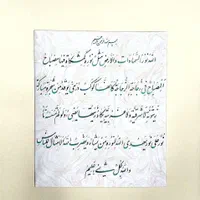 بسم الله الرحمن الرحیم
الله نور السماوات والارض مثل نوره كمشكاة فيها مصباح
المصباح في زجاجة الزجاجة كأنها كوكب دري يوقد من شجرة مباركة
زيتونة لا شرقية ولا غربية يكاد زيتها يضيء ولو لم تمسسه نار
نور على نور يهدي الله لنوره من يشاء ويضرب الله الامثال للناس
والله بكل شيء عليم